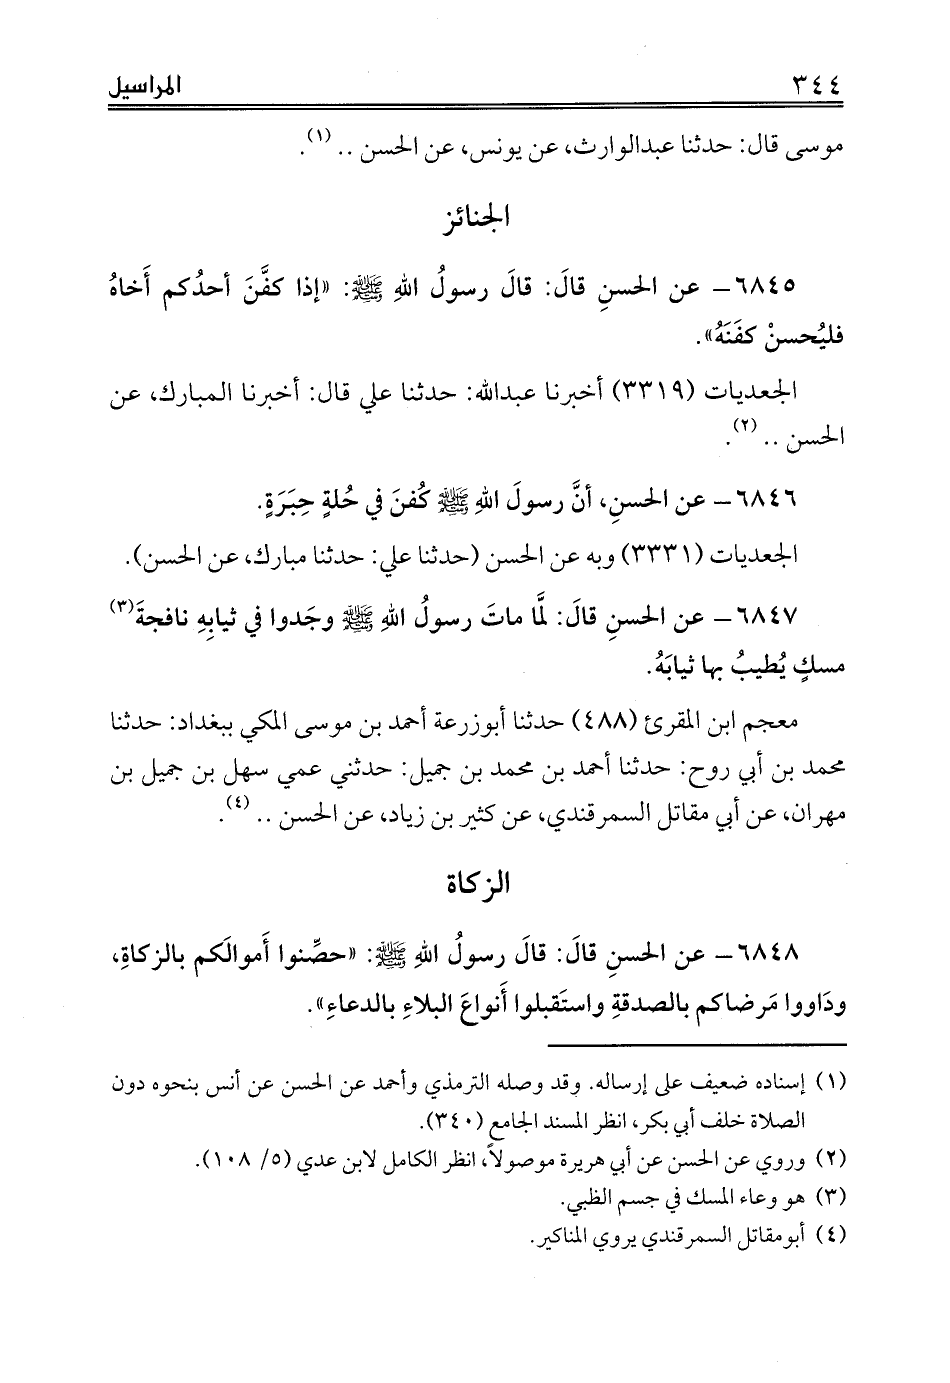 ٣٤٤ المراسيل
موسى قال: حدثنا عبدالوارث، عن يونس، عن الحسن .. (١).
الجنائز
٦٨٤٥ – عن الحسنِ قالَ: قالَ رسولُ اللهِ ﷺ: «إذا كفَّنَ أحدُكم أَخاهُ
فليُحسنْ كفَنَهُ».
الجعديات (٣٣١٩) أخبرنا عبدالله: حدثنا علي قال: أخبرنا المبارك، عن
الحسن .. (٢).
٦٨٤٦ – عن الحسنِ، أنَّ رسولَ اللهِ ﷺ كُفنَ في حُلةٍ حِبَرَةٍ.
الجعديات (٣٣٣١) وبه عن الحسن (حدثنا علي: حدثنا مبارك، عن الحسن).
٦٨٤٧ – عن الحسنِ قالَ: لمَّا ماتَ رسولُ اللهِ ﷺ وجَدوا في ثيابِهِ نافجةَ(٣)
مسكٍ يُطيبُ بها ثيابَهُ.
معجم ابن المقرئ (٤٨٨) حدثنا أبوزرعة أحمد بن موسى المكي ببغداد: حدثنا
محمد بن أبي روح: حدثنا أحمد بن محمد بن جميل: حدثني عمي سهل بن جميل بن
مهران، عن أبي مقاتل السمرقندي، عن كثير بن زياد، عن الحسن .. (٤).
الزكاة
٦٨٤٨ – عن الحسنِ قالَ: قالَ رسولُ اللهِ ﷺ: «حصِّنوا أَموالَكم بالزكاةِ،
ودَاووا مَرضاكم بالصدقةِ واستَقبلوا أَنواعَ البلاءِ بالدعاءِ».
(١) إسناده ضعيف على إرساله. وقد وصله الترمذي وأحمد عن الحسن عن أنس بنحوه دون
الصلاة خلف أبي بكر، انظر المسند الجامع (٣٤٠).
(٢) وروي عن الحسن عن أبي هريرة موصولاً، انظر الكامل لابن عدي (٥/ ١٠٨).
(٣) هو وعاء المسك في جسم الظبي.
(٤) أبومقاتل السمرقندي يروي المناكير.